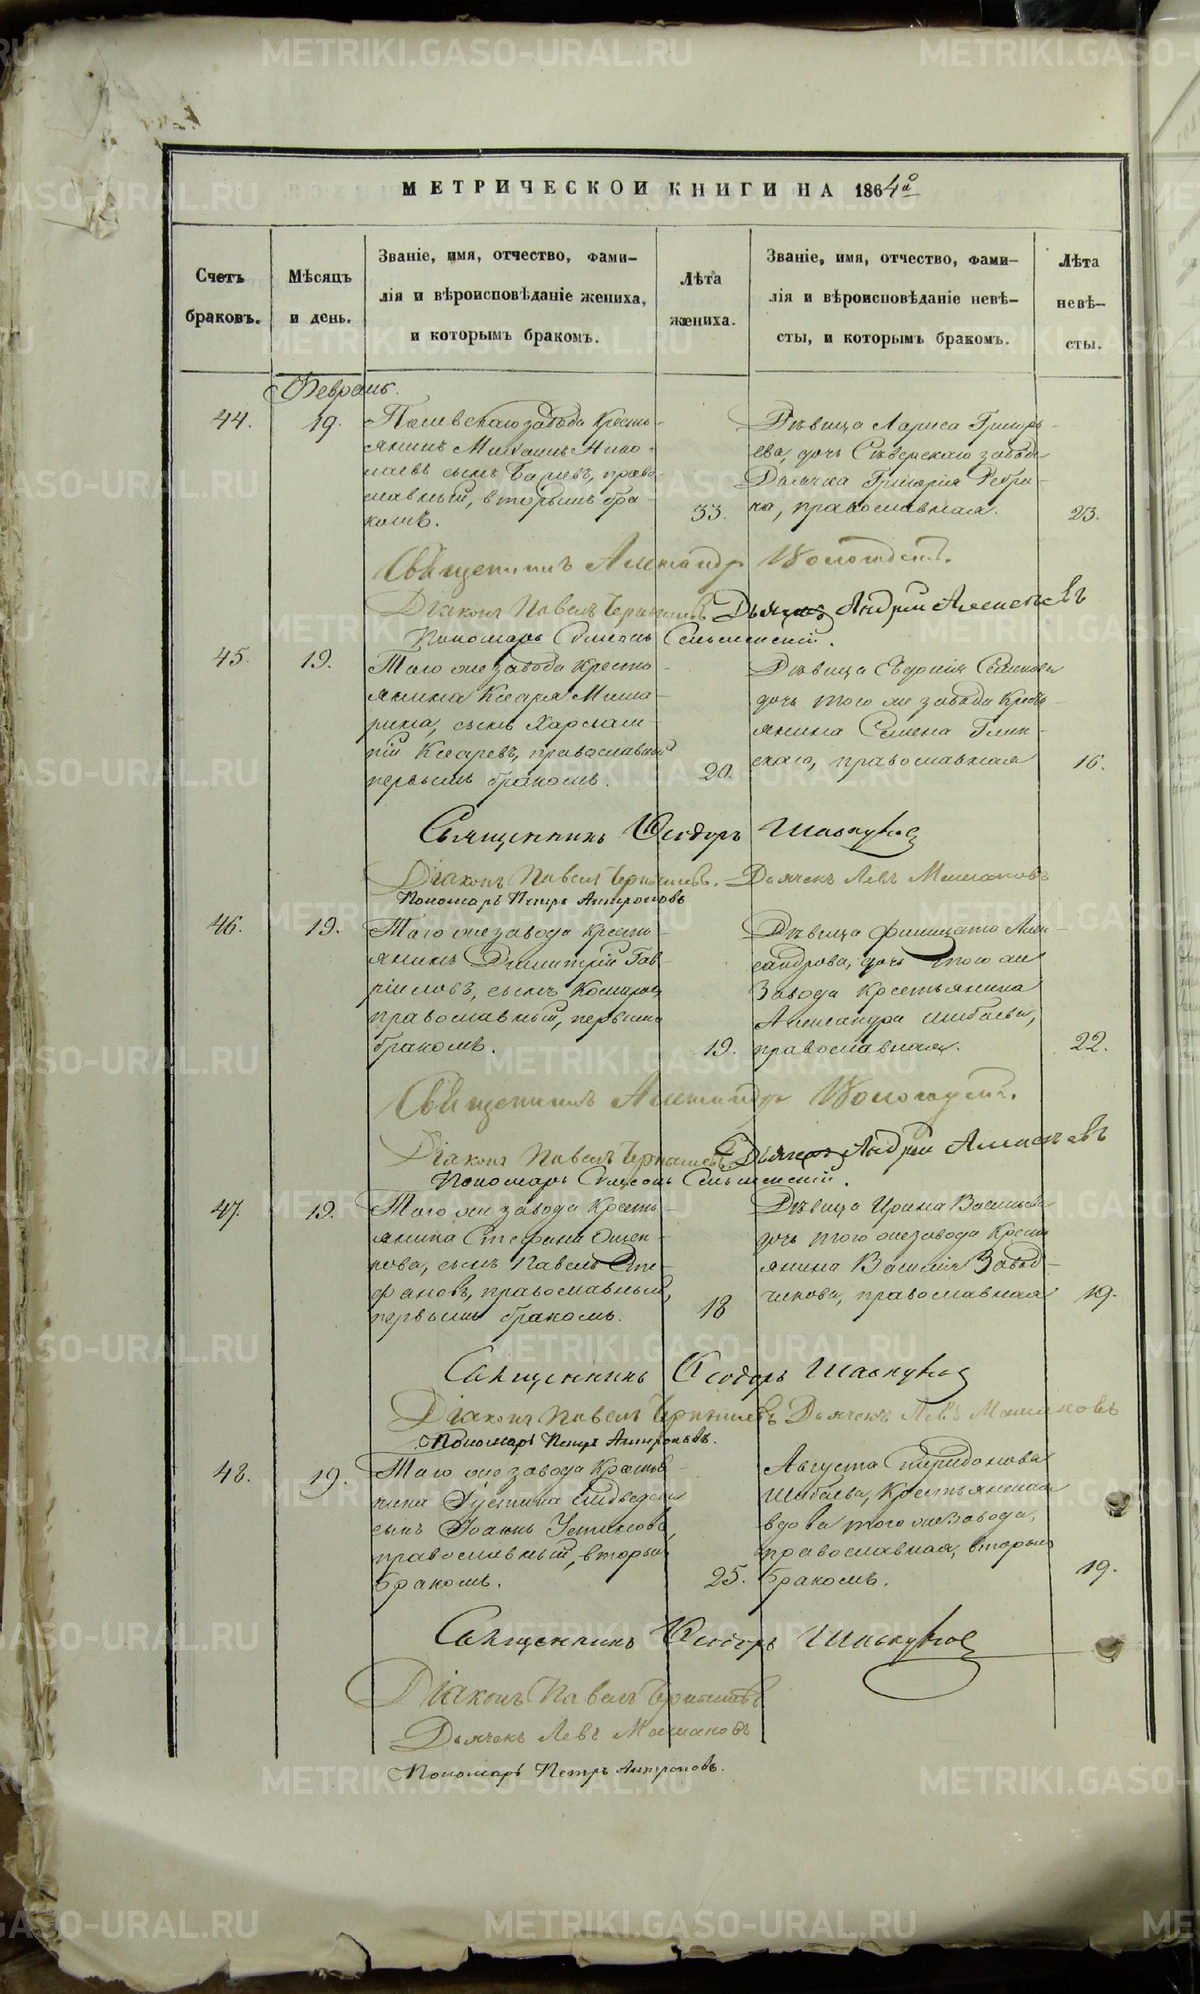 МЕТРИЧЕСКОЙ КНИГИ НА 1864й
Счетъ браковъ.
Мѣсяцъ и день.
Званіе, имя, отчество, фами-
лія и вѣроисповѣданіе жениха,
и которымъ бракомъ.
Лѣта жениха.
Званіе, имя, отчество, фами-
лія и вѣроисповѣданіе невѣ-
сты, и которымъ бракомъ.
Лѣта невѣ-
сты.
Февраль.
44.
19.
Полевскаго завода Кресть-
янинъ Михаилъ Нико-
лаевъ сынъ православный, вторымъ бра-
комъ.
33.
Дѣвица Лариса Григорь-
ева, дочь Сѣверскаго завода
Дьячка Григорія
православная.
23.
Священникъ Александр Вологодскій.
Діаконъ Павелъ Чернышевъ Дьячекъ Андрей Алексѣевъ
Пономарь Симеонъ Сельменскій.
45.
19.
Того же завода Крестья-
янина Кесаря
сынъ Харлам-
пій Кесаревъ, православный
первымъ бракомъ.
20.
Дѣвица Евдокія Семенова
дочь того же завода Кресть-
янина Семена Глин-
скаго, православная
16.
Священникъ Ѳеодоръ
Діаконъ Павелъ Чернышевъ. Дьячекъ Левъ
Пономарь Петръ Антроповъ
46.
19.
Того же завода Кресть-
янинъ Димитрій Гав-
ріиловъ, сынъ Комаровъ
православный, первымъ
бракомъ.
19.
Дѣвица Фелицата Алек-
сандрова, дочь того же
Завода Крестьянина
Александра Шибаева,
православная.
22.
Священникъ Александр Вологодскій.
Діаконъ Павелъ Чернышевъ Дьячекъ Андрей Алексѣевъ
Пономарь Симеонъ Сельменскій.
47.
19.
Того же завода Кресть-
янина Стефана
сынъ Павелъ Сте-
фановъ, православный,
первымъ бракомъ.
18
Дѣвица Ирина Васильева
дочь того же завода Кресть-
янина Василія Завод-
чикова, православная
19.
Священникъ Ѳеодоръ
Діаконъ Павелъ Чернышевъ Дьячекъ Левъ
Пономарь Петръ Антроповъ.
48.
19.
Того же завода Крестья-
нина Іустина
сынъ Іоаннъ Устиновъ,
православный, вторымъ
бракомъ.
25.
Августа Спиридонова
Шибаева, Крестьянская
вдова того же завода,
православная, вторымъ
бракомъ.
19.
Священникъ Ѳеодоръ
Діаконъ Павелъ Чернышевъ
Дьячекъ Левъ
Пономарь Петръ Антроповъ.
METRIKI.GASO-URAL.RU